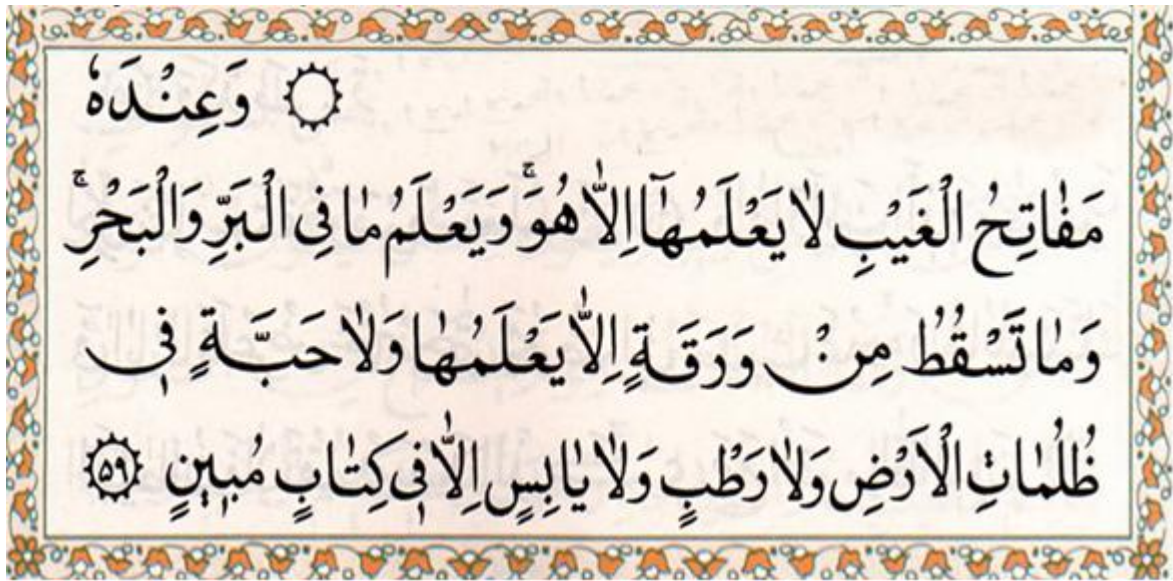 وَعِنْدَهُ
مَفَاتِحُ الْغَيْبِ لَا يَعْلَمُهَٓا اِلَّا هُوَۚ وَيَعْلَمُ مَا فِي الْبَرِّ وَالْبَحْرِۚ
وَمَا تَسْقُطُ مِنْ وَرَقَةٍ اِلَّا يَعْلَمُهَا وَلَا حَبَّةٍ ف۪ي
ظُلُمَاتِ الْاَرْضِ وَلَا رَطْبٍ وَلَا يَابِسٍ اِلَّا ف۪ي كِتَابٍ مُب۪ينٍ ﴿٥٩﴾